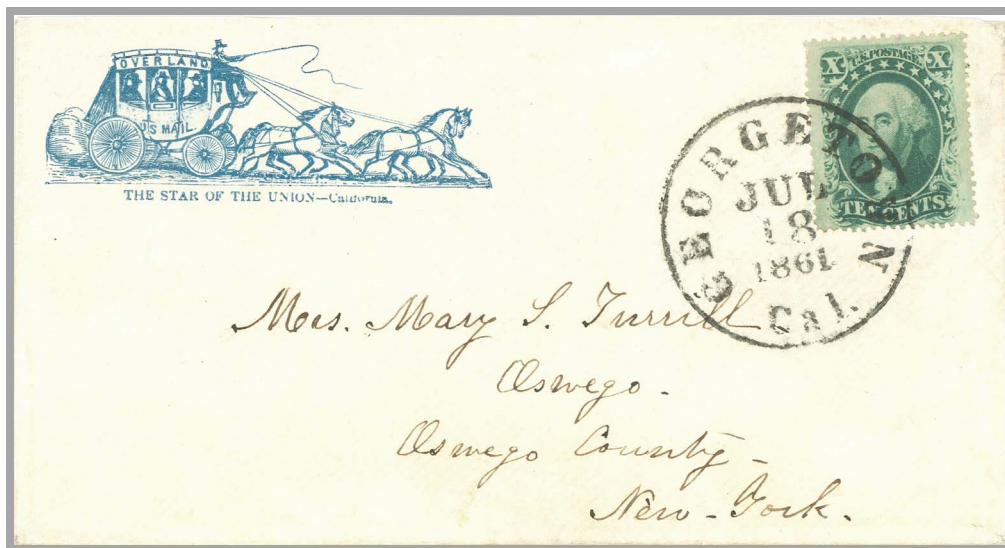 OVERLAND
U S MAIL
THE STAR OF THE UNION—California.
X U.S. POSTAGE X
TEN CENTS
GEORGETOWN
JUL
18
1861
Cal.
Mrs. Mary S. Turrill
Oswego.
Oswego County
New-York.